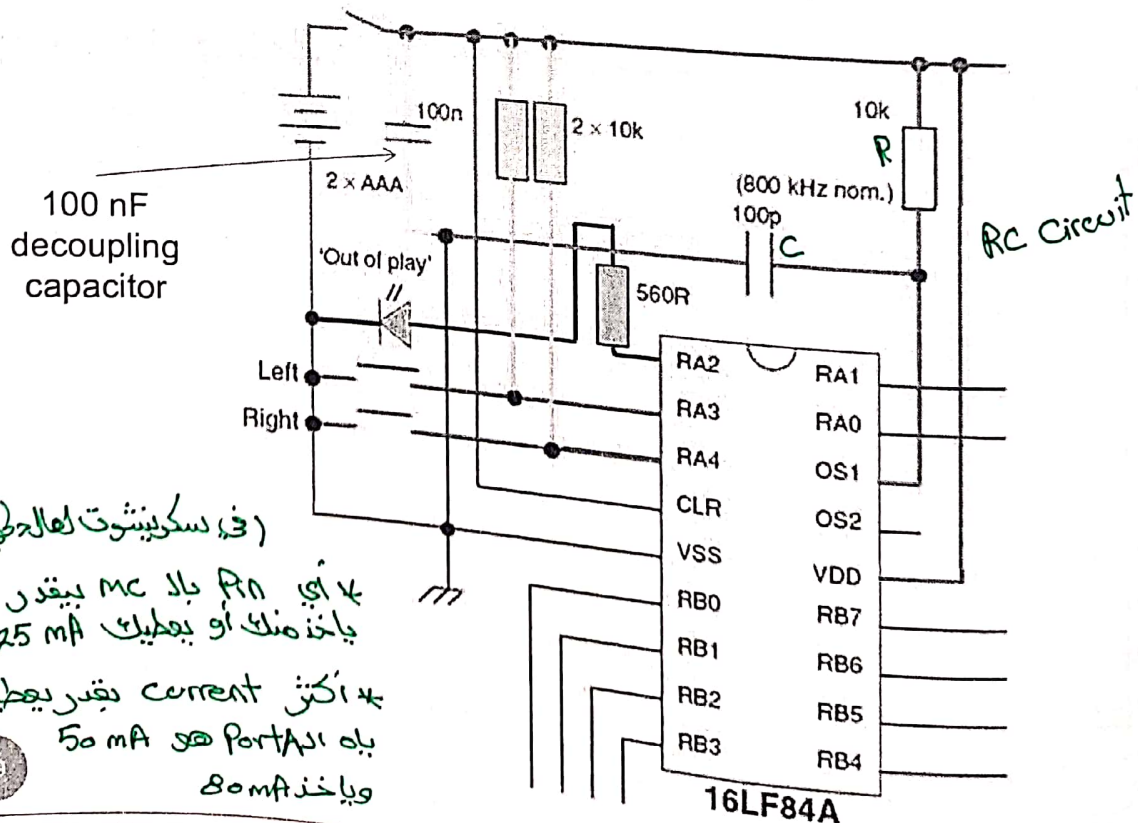 100n
2 × 10k
2 × AAA
100 nF
decoupling
capacitor
10k
R
(800 kHz nom.)
100p
C
RC Circuit
'Out of play'
560R
Left
Right
RA2
RA3
RA4
CLR
VSS
RB0
RB1
RB2
RB3
RA1
RA0
OS1
OS2
VDD
RB7
RB6
RB5
RB4
16LF84A
(في سكرينشوت لهال
* أي Pin بالـ MC بيقدر
ياخذ منك أو يعطيك 25 mA
* أكثر current بقدر
الـ PortA هو 50 mA
وياخذ 80mA